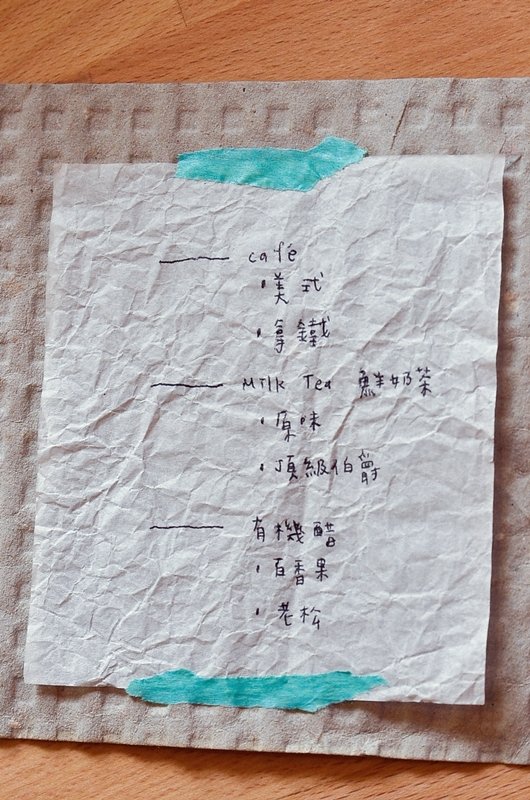 café
·美式
·拿鐵
Milk Tea 鮮奶茶
·原味
·頂級伯爵
有機醋
·百香果
·老松